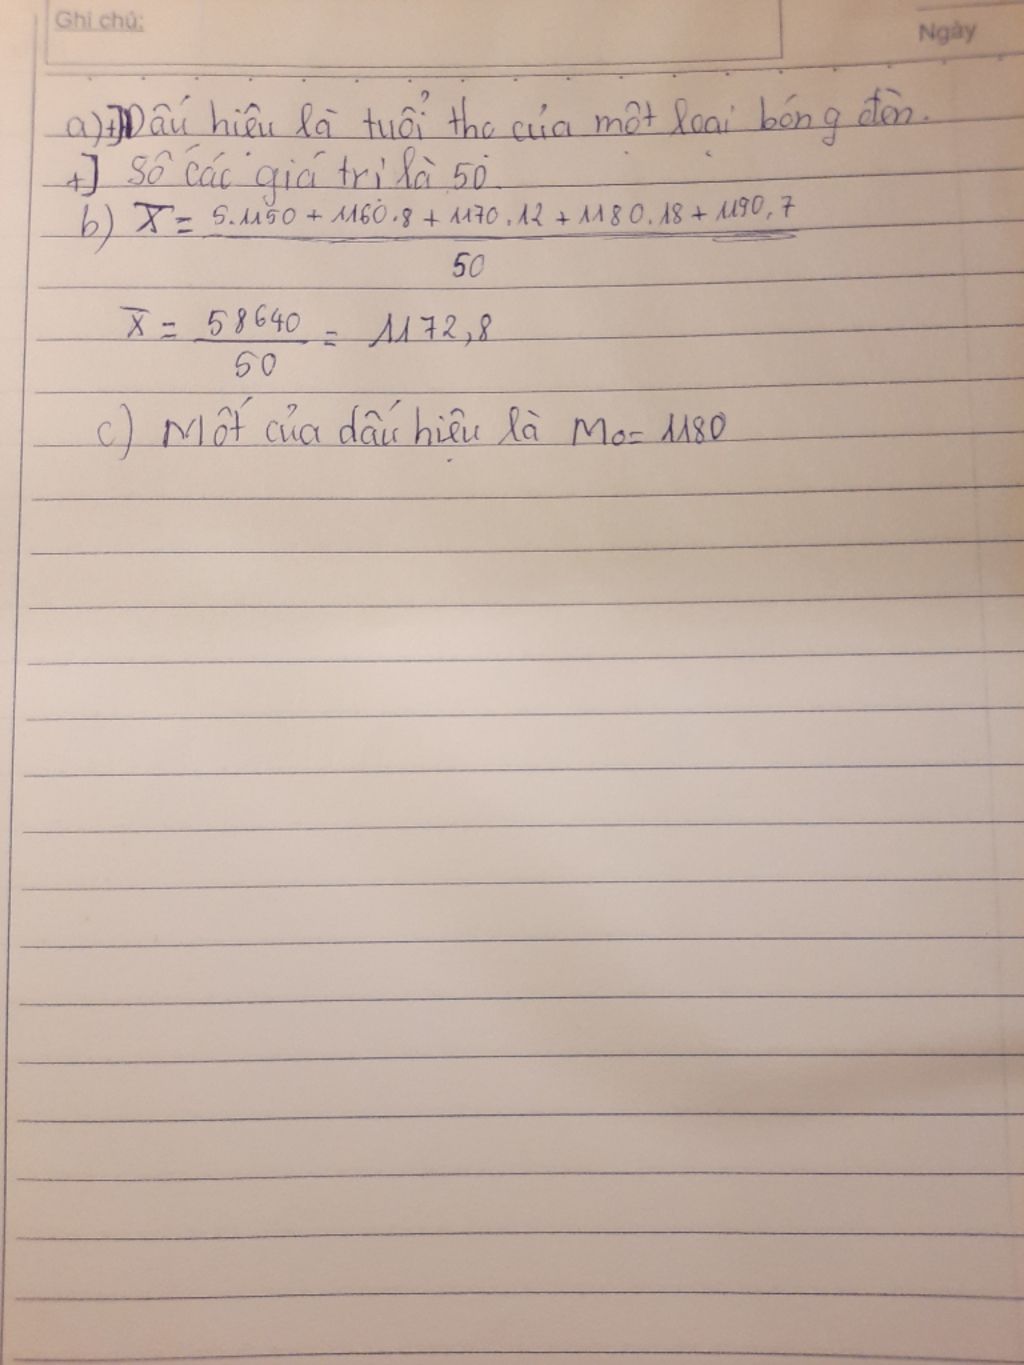 Ghi chú:
Ngày
a) +] Dấu hiệu là tuổi thọ của một loại bóng đèn.
+] Số các giá trị là 50
b) X̄ = 5.1150 + 1160.8 + 1170.12 + 1180.18 + 1190.7
50
X̄ = 58640 / 50 = 1172,8
c) Mốt của dấu hiệu là Mo = 1180